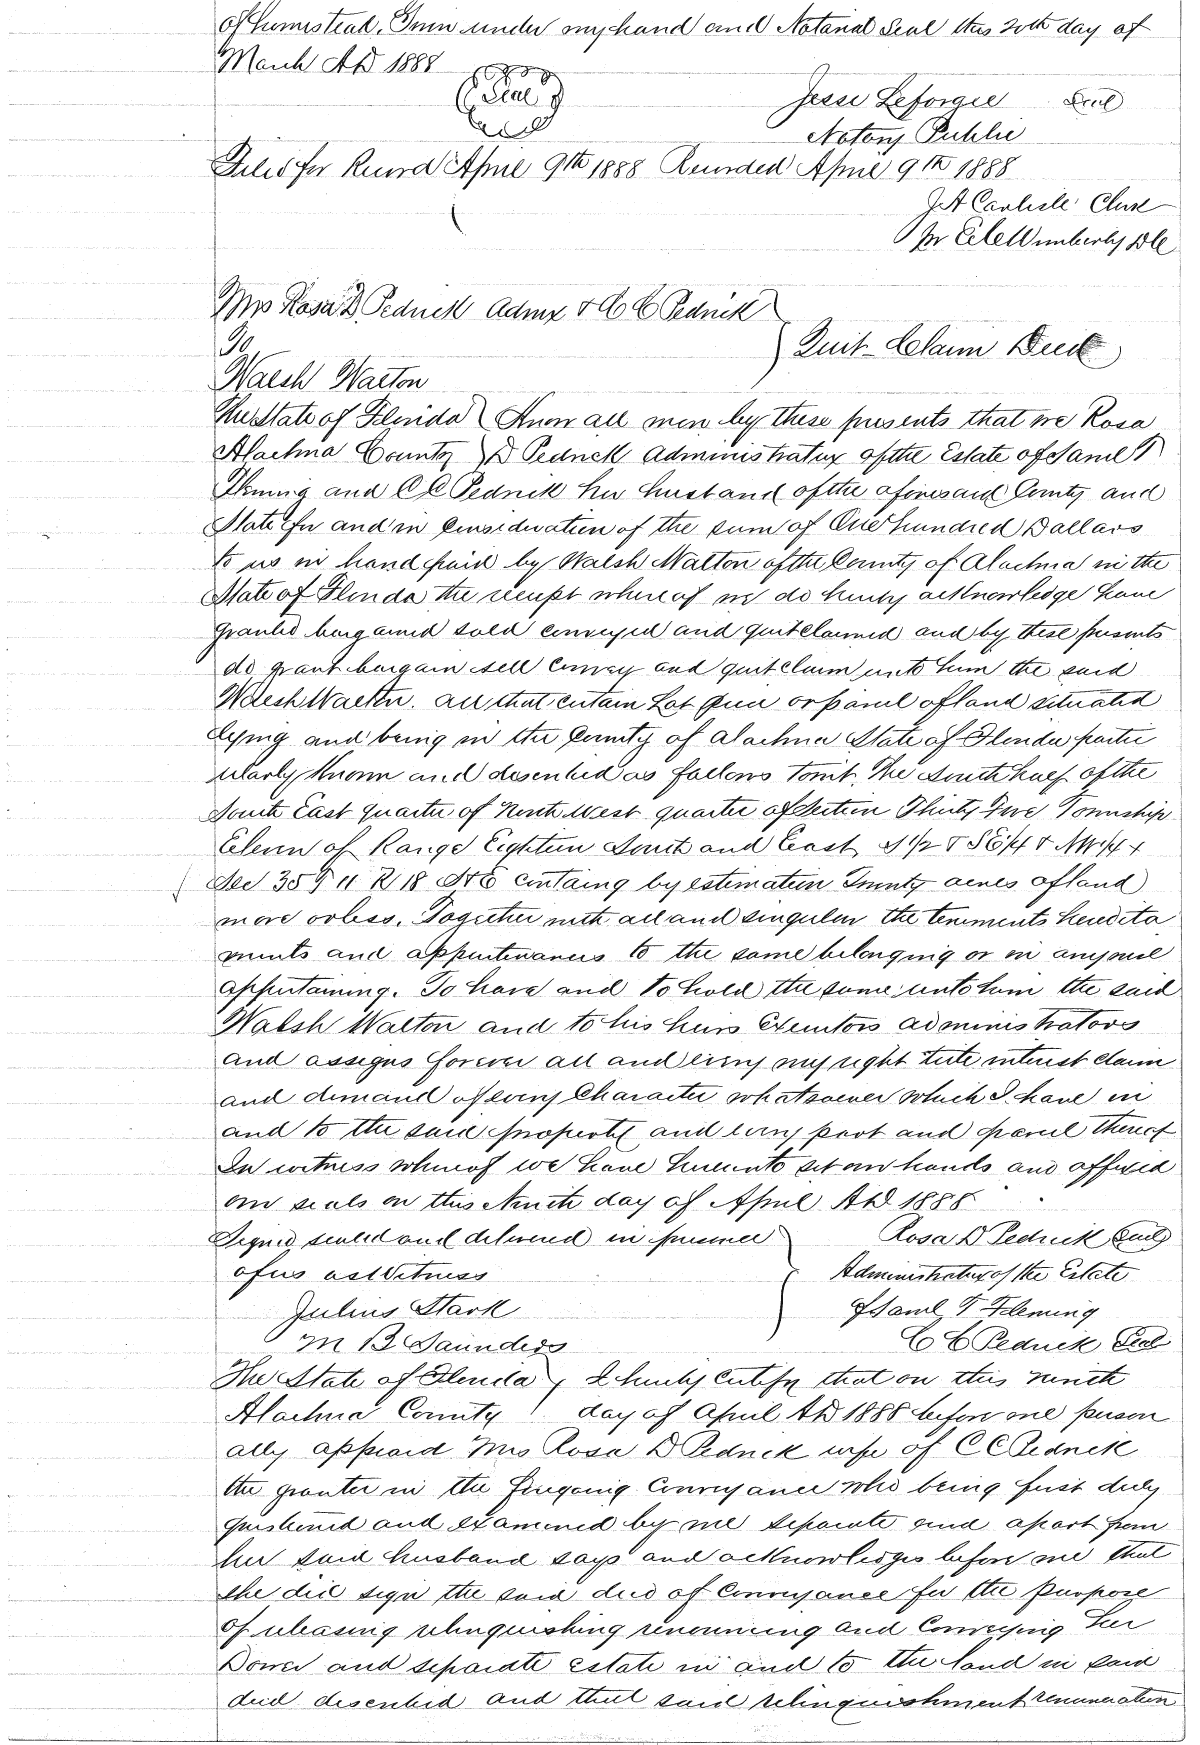 of homestead. Given under my hand and Notarial Seal this 20th day of
March AD 1888
Seal
Jesse Leforgee Seal
Notary Public
Filed for Record April 9th 1888 Recorded April 9th 1888
J A Carlisle Clerk
Pr Wimberly DC
Mrs Rosa D. Pednick Admx & C C Pednick
To
Quit-Claim Deed
Walsh Walton
The State of Florida Know all men by these presents that we Rosa
Alachua County D Pednick Administratrix of the Estate of Saml T
Fleming and C C Pednick her husband of the aforesaid County and
State for and in consideration of the sum of One hundred Dollars
to us in hand paid by Walsh Walton of the County of Alachua in the
State of Florida the receipt whereof we do hereby acknowledge have
granted bargained sold conveyed and quitclaimed and by these presents
do grant bargain sell convey and quitclaim unto him the said
Walsh Walton. all that certain Lot piece or parcel of land situated
lying and being in the County of Alachua State of Florida partic
ularly known and described as follows Towit. The South half of the
South East quarter of North West quarter of Section Thirty Five Township
Eleven of Range Eighteen South and East S 1/2 & SE 1/4 & NW 1/4 +
Sec 35 T 11 R 18 S & E containg by estimation Twenty acres of land
more or less. Together with all and singular the tenements heredita
ments and appurtenances to the same belonging or in anywise
appertaining. To have and to hold the same unto him the said
Walsh Walton and to his heirs Executors administrators
and assigns forever all and every my right title interest claim
and demand of every Character whatsoever which I have in
and to the said property and every part and parcel thereof
In witness whereof we have hereunto set our hands and affixed
our seals on this Ninth day of April AD 1888
Signed sealed and delivered in presence Rosa D Pednick Seal
of us as Witness Administratrix of the Estate
Julius Stark of Saml T Fleming
M B Saunders C C Pednick Seal
The State of Florida I hereby certify that on this ninth
Alachua County day of April AD 1888 before me person
ally appeard Mrs Rosa D Pednick wife of C C Pednick
the grantor in the foregoing Conveyance who being first duly
questioned and examined by me separate and apart from
her said husband says and acknowledges before me that
she did sign the said deed of Conveyance for the purpose
of releasing relinquishing renouncing and Conveying her
Dower and separate estate in and to the land in said
deed described and that said relinquishment renunciation